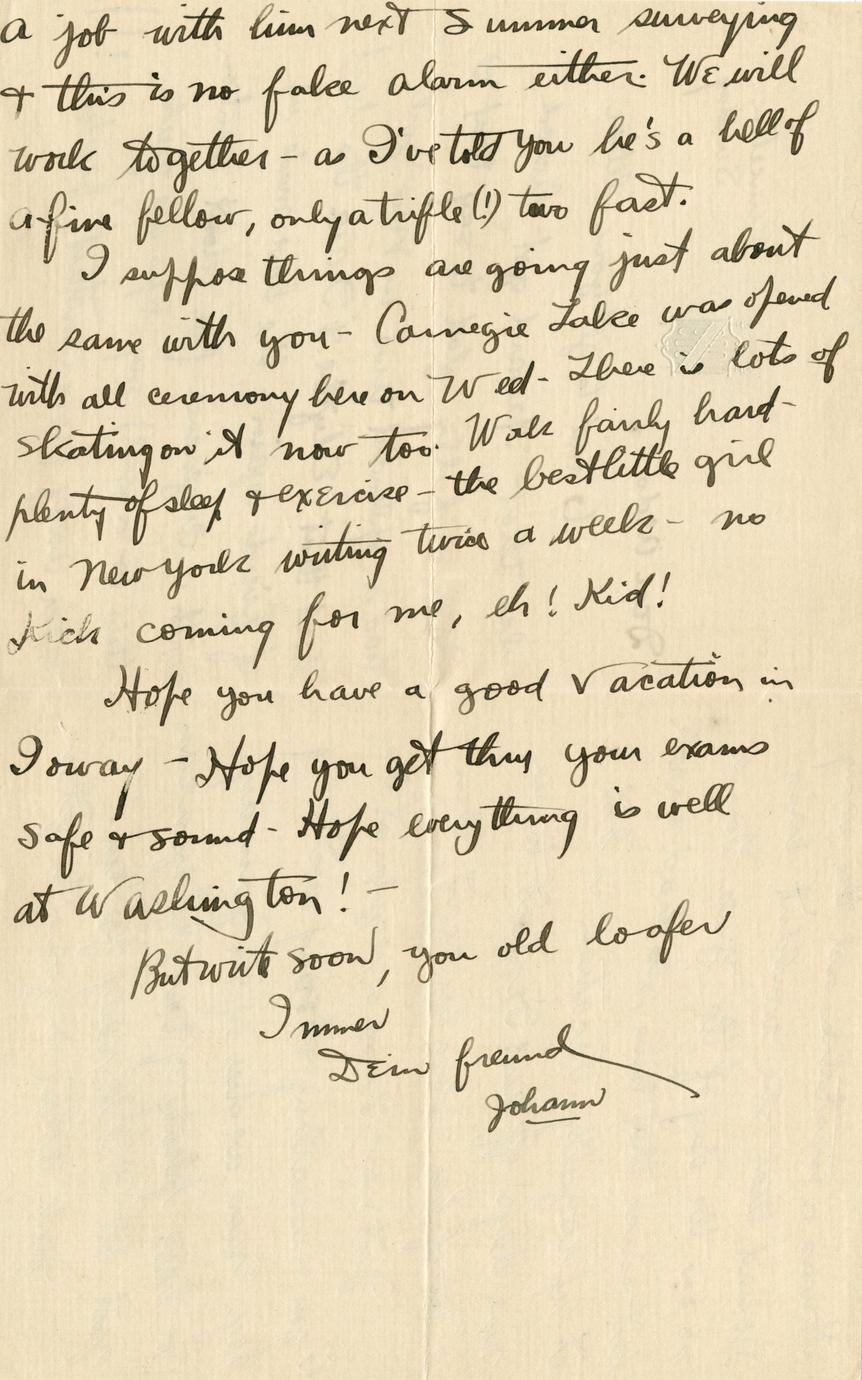 a job with him next Summer surveying
& this is no fake alarm either. We will
work together - as I've told you he's a hell of
a fine fellow, only a trifle (!) too fast.
I suppose things are going just about
the same with you - Carnegie Lake was opened
with all ceremony here on Wed - There is lots of
skating on it now too. Work fairly hard -
plenty of sleep & exercise - the best little girl
in New York writing twice a week - no
Kick coming for me, eh! Kid!
Hope you have a good vacation in
Ioway - Hope you get thru your exams
safe & sound - Hope everything is well
at Washington! -
But write soon, you old loafer
Immer
Dein freund
Johann